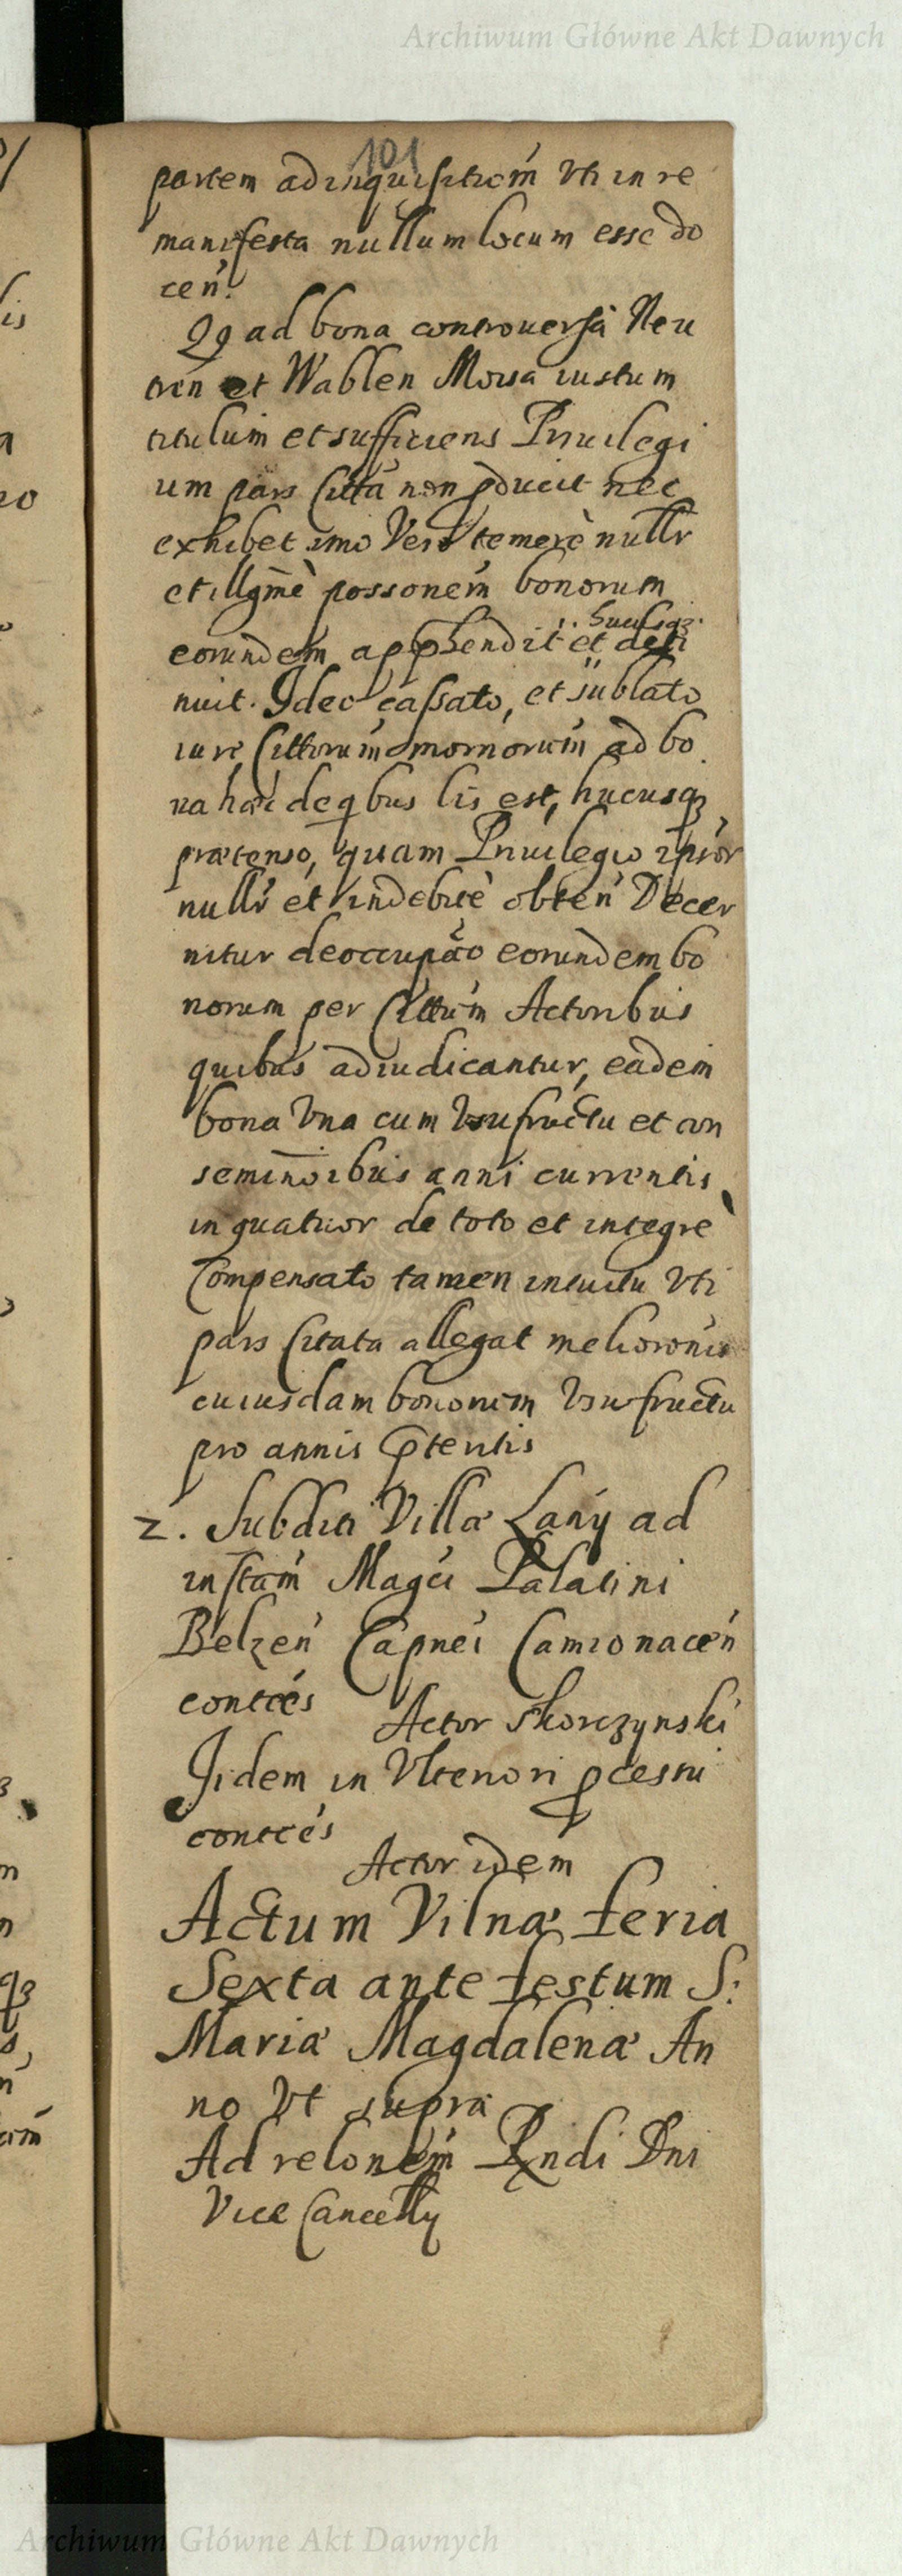 Archiwum Główne Akt Dawnych
101
partem ad inquisitioń Vti in re
manifesta nullum locum esse do
ceń.
Qq ad bona controuersa Neu
tren et Wablen Moisa iustum
titulum et sufficiens Priuilegi
um pars Citta non pducit nec
exhibet imo Vero temerè nullr
et illgmè possonem bonorum
hucusqz
eorundem apphendit et deti
nuit. Ideo cassato, et sublato
iure Cittorum omornorum ad bo
na hac de qbus lis est, hucusqz
prætenso, quam Priuilegio ipsor
nullr et indebitè obteń Decer
nitur deoccupão eorundem bo
norum per Cittum Actoribus
quibus adiudicantur, eadem
bona Vna cum Vsufructu et con
seminoibus anni currentis
in quatuor de toto et integrè
Compensato tamen intuitu Vti
pars Citata allegat melioronis
cuiusdam bonorum Vsufructu
pro annis ptentis
2. Subditi Villæ Lany ad
instam Magci Palatini
Belzeń Capnei Camionaceń
conttes
Actor Skorczynski
Iidem in Vlteriori pcessu
conttes
Actor idem
Actum Vilnæ feria
Sexta ante festum S:
Mariæ Magdalenæ An
no Vt supra
Ad relonem Rndi Dni
Vice Cancelly
Archiwum Główne Akt Dawnych